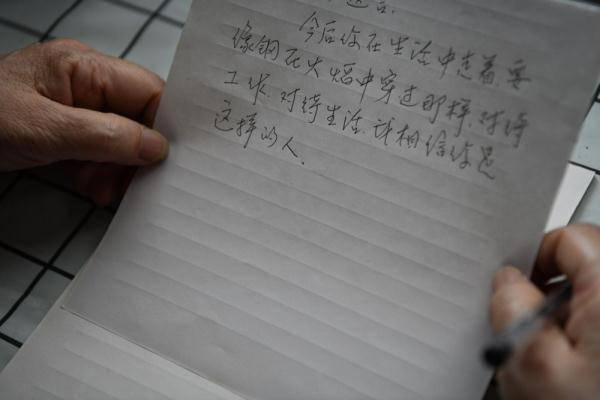 今后你在生活中走着要
像钢在火焰中穿过那样对待
工作.对待生活.我相信你是
这样的人.